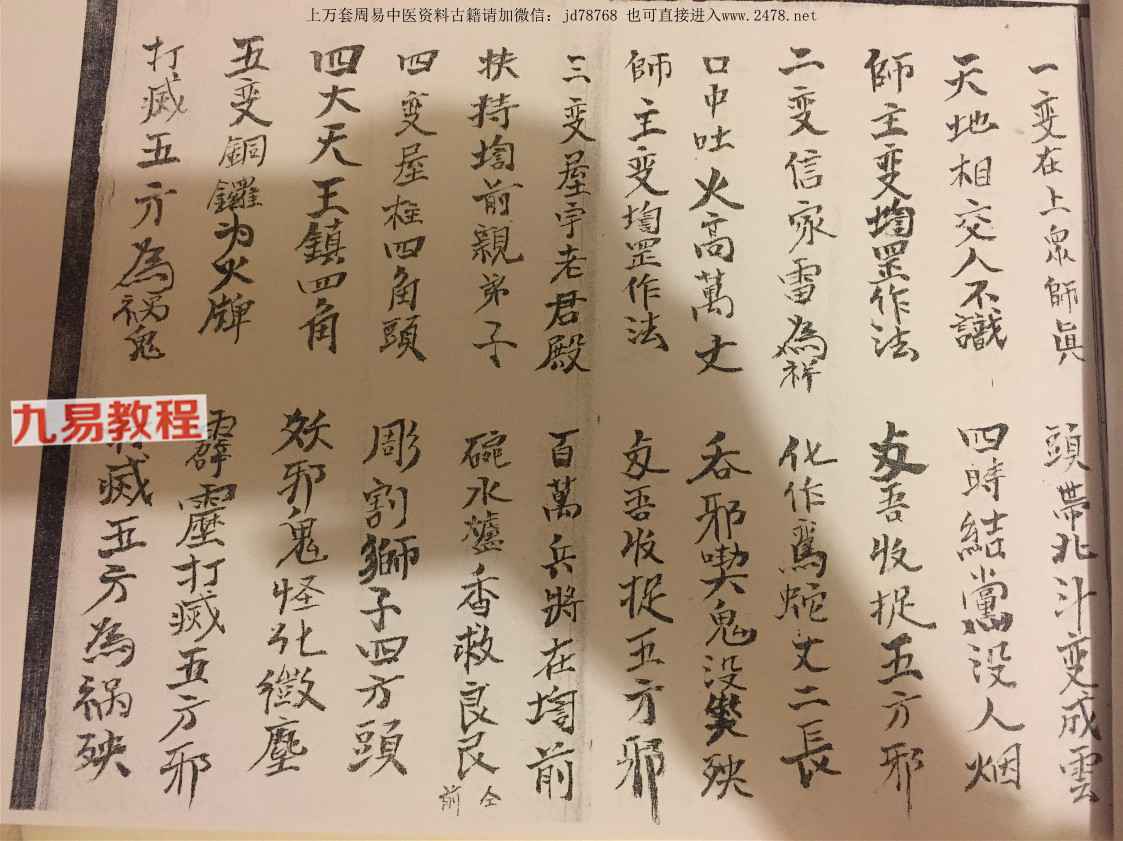 上万套周易中医资料古籍请加微信：jd78768 也可直接进入www.2478.net
一变在上眾師真 頭帶北斗变成雲
天地相交人不識 四時結黨没人烟
師主变墹罡作法 矣吾收捉五方邪
二变信家雷為祈 化作蔦蛇丈二長
口中吐火高萬丈 吞邪喫鬼没殃
師主变墹罡作法 吾收捉五方邪
三变屋宇老君殿 百萬兵將在墹前
扶持墹前親弟子 碗水爐香救良艮
仝前
四变屋柱四角頭 彫割獅子四方頭
四大天王鎮四角 妖邪鬼怪化微塵
五变銅鑼為火牌 霹靂打滅五方邪
打滅五方為禍鬼 滅五方為禍殃
九易教程